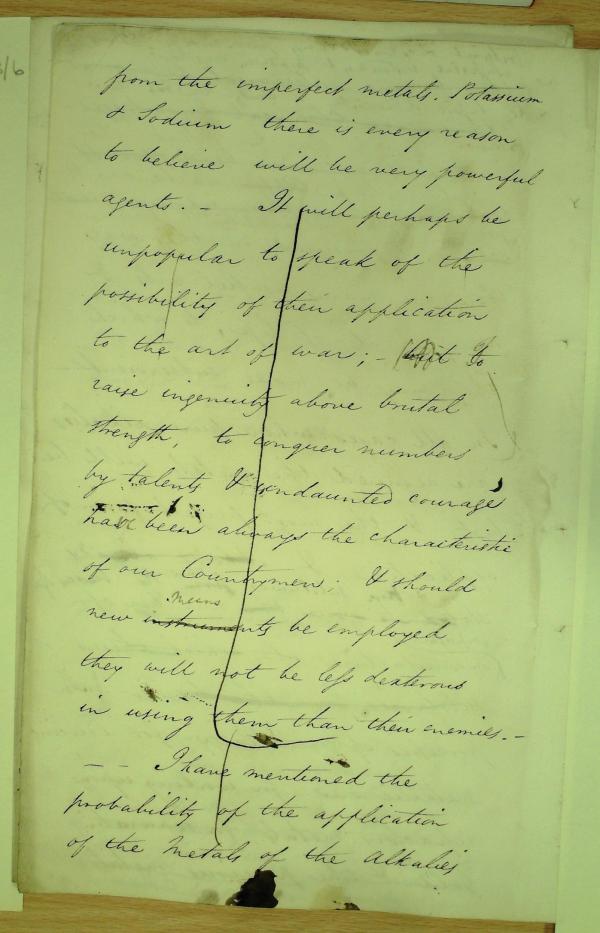 from the imperfect metals. Potassium
& Sodium there is every reason
to believe will be very powerful
agents. - It will perhaps be
unpopular to speak of the
possibility of their application
to the art of war; - but to
raise ingenuity above brutal
strength, to conquer numbers
by talents & undaunted courage
have been always the characteristic
of our Countrymen; & should
means
new instruments be employed
they will not be less dexterous
in using them than their enemies. -
- - I have mentioned the
probability of the application
of the Metals of the Alkalies